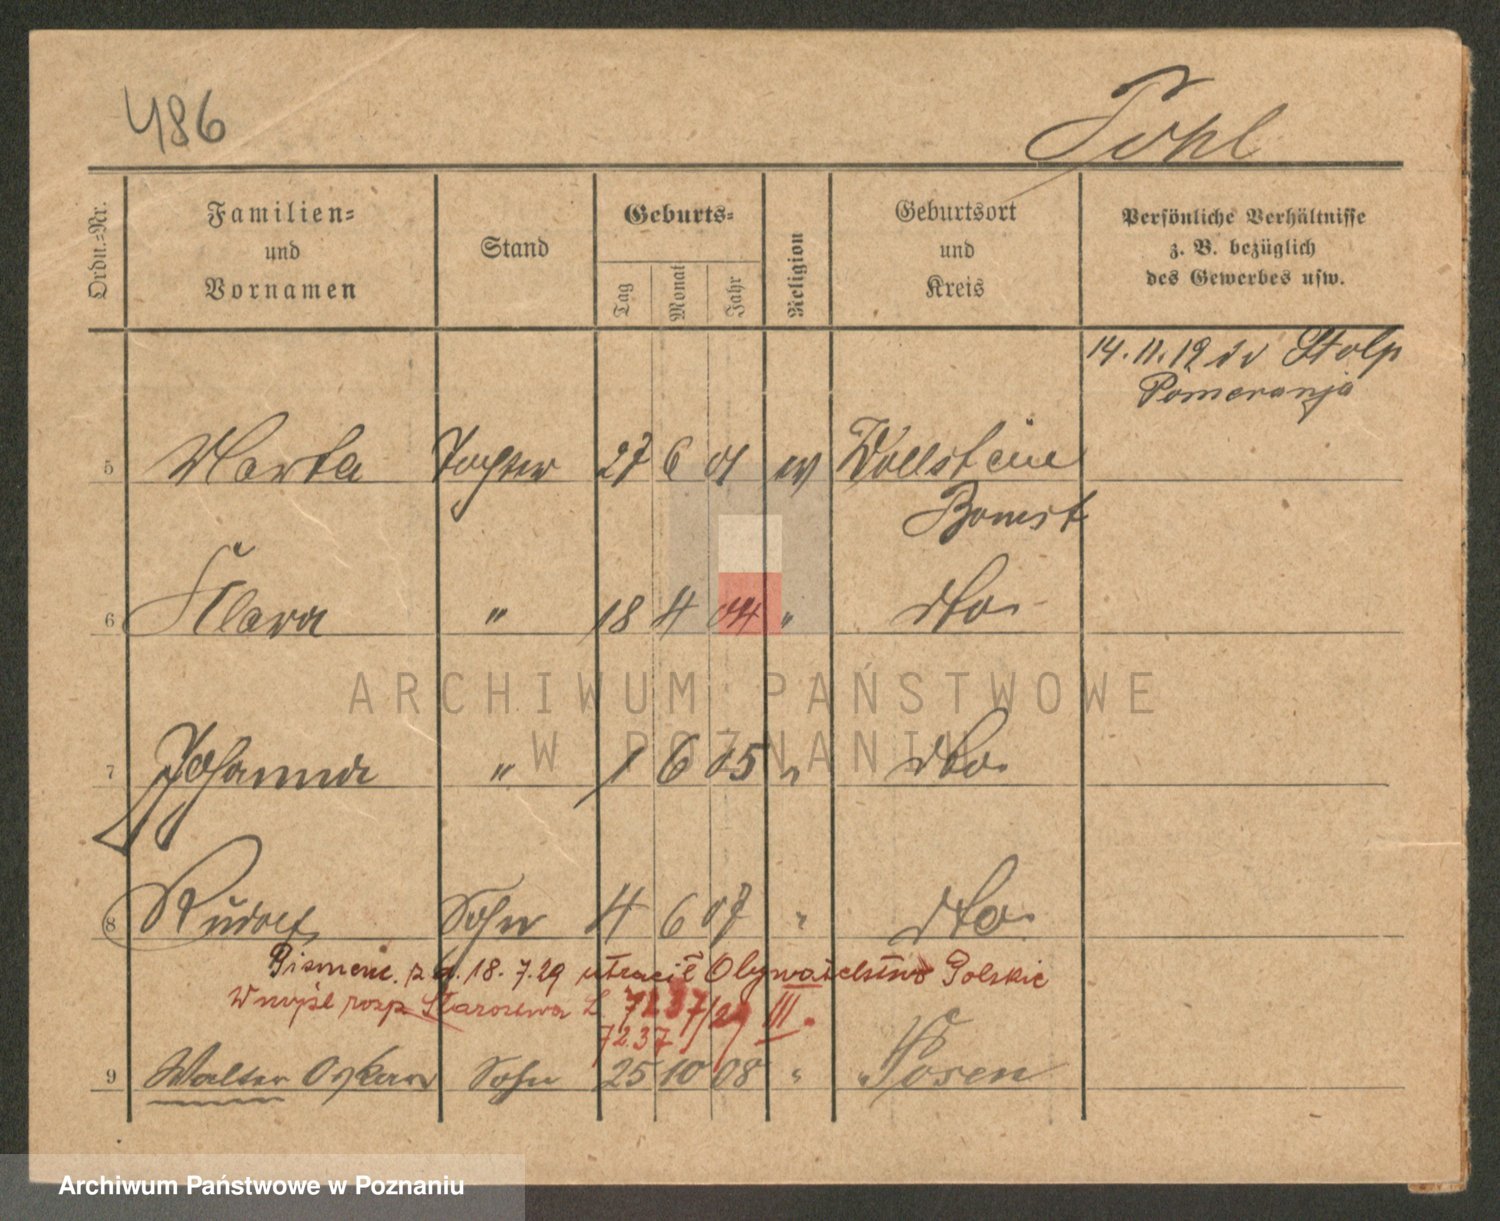 486
Pohl
Ordn.=Nr.
Familien=
und
Vornamen
Stand
Geburts=
Tag
Monat
Jahr
Religion
Geburtsort
und
Kreis
Persönliche Verhältnisse
z. B. bezüglich
des Gewerbes usw.
14.11.19 Stolp
Pomeranja
5 Marta Tochter 27 6 01 ev Wollstein
Bomst
6 Klara " 18 4 04 " dto.
7 Johanna " 1 6 05 " dto.
8 Rudolf Sohn 4 6 07 " dto.
z d. 18.7.29 utracił Obywatelstwo Polskie
W myśl rozp. Starostwa L 7237/29 III.
7237
9 Walter Oskar Sohn 25 10 08 " Posen
ARCHIWUM PAŃSTWOWE
W POZNANIU
Archiwum Państwowe w Poznaniu